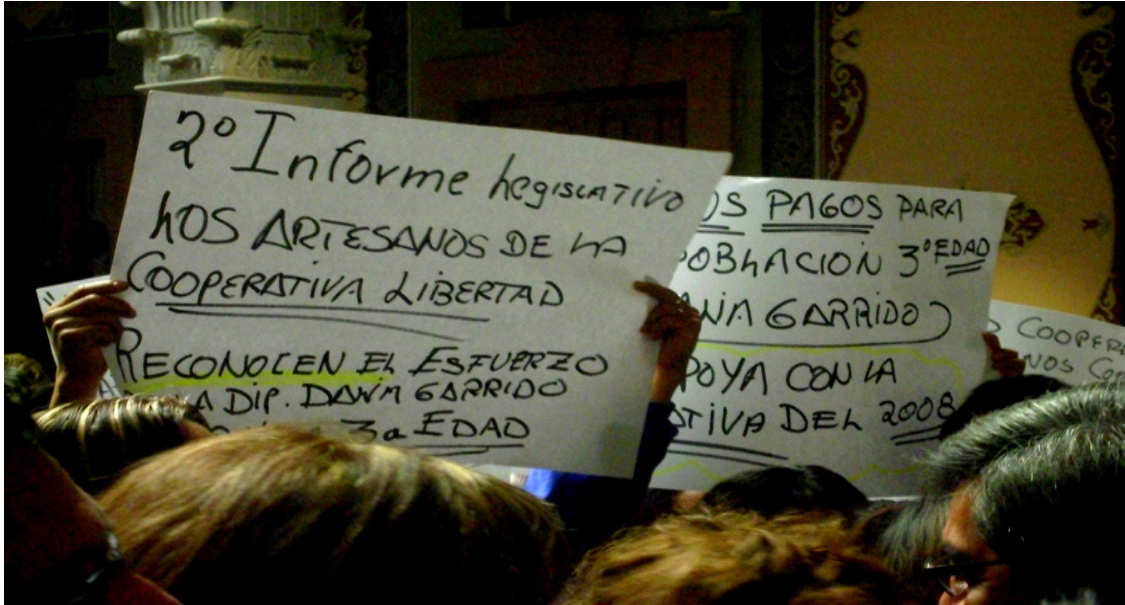 2º Informe Legislativo
LOS ARTESANOS DE LA
COOPERATIVA LIBERTAD
RECONOCEN EL ESFUERZO
A DIP. DANIA GARRIDO
3a EDAD
OS PAGOS PARA
OBLACION 3º EDAD
NIA GARRIDO
POYA CON LA
ATIVA DEL 2008
COOPER
NOS